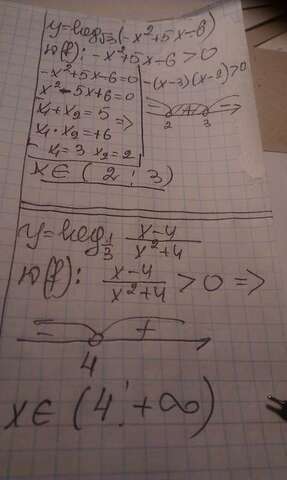 y=log√3(-x²+5x-6)
D(f): -x²+5x-6>0
-x²+5x-6=0
x²-5x+6=0
x₁+x₂=5 =>
x₁·x₂=+6
x₁=3 x₂=2
-(x-3)(x-2)>0
- + -
2 3
x∈(2;3)
y=log 1/3 x-4/x²+4
D(f): x-4/x²+4 >0 =>
- +
4
x∈(4;+∞)